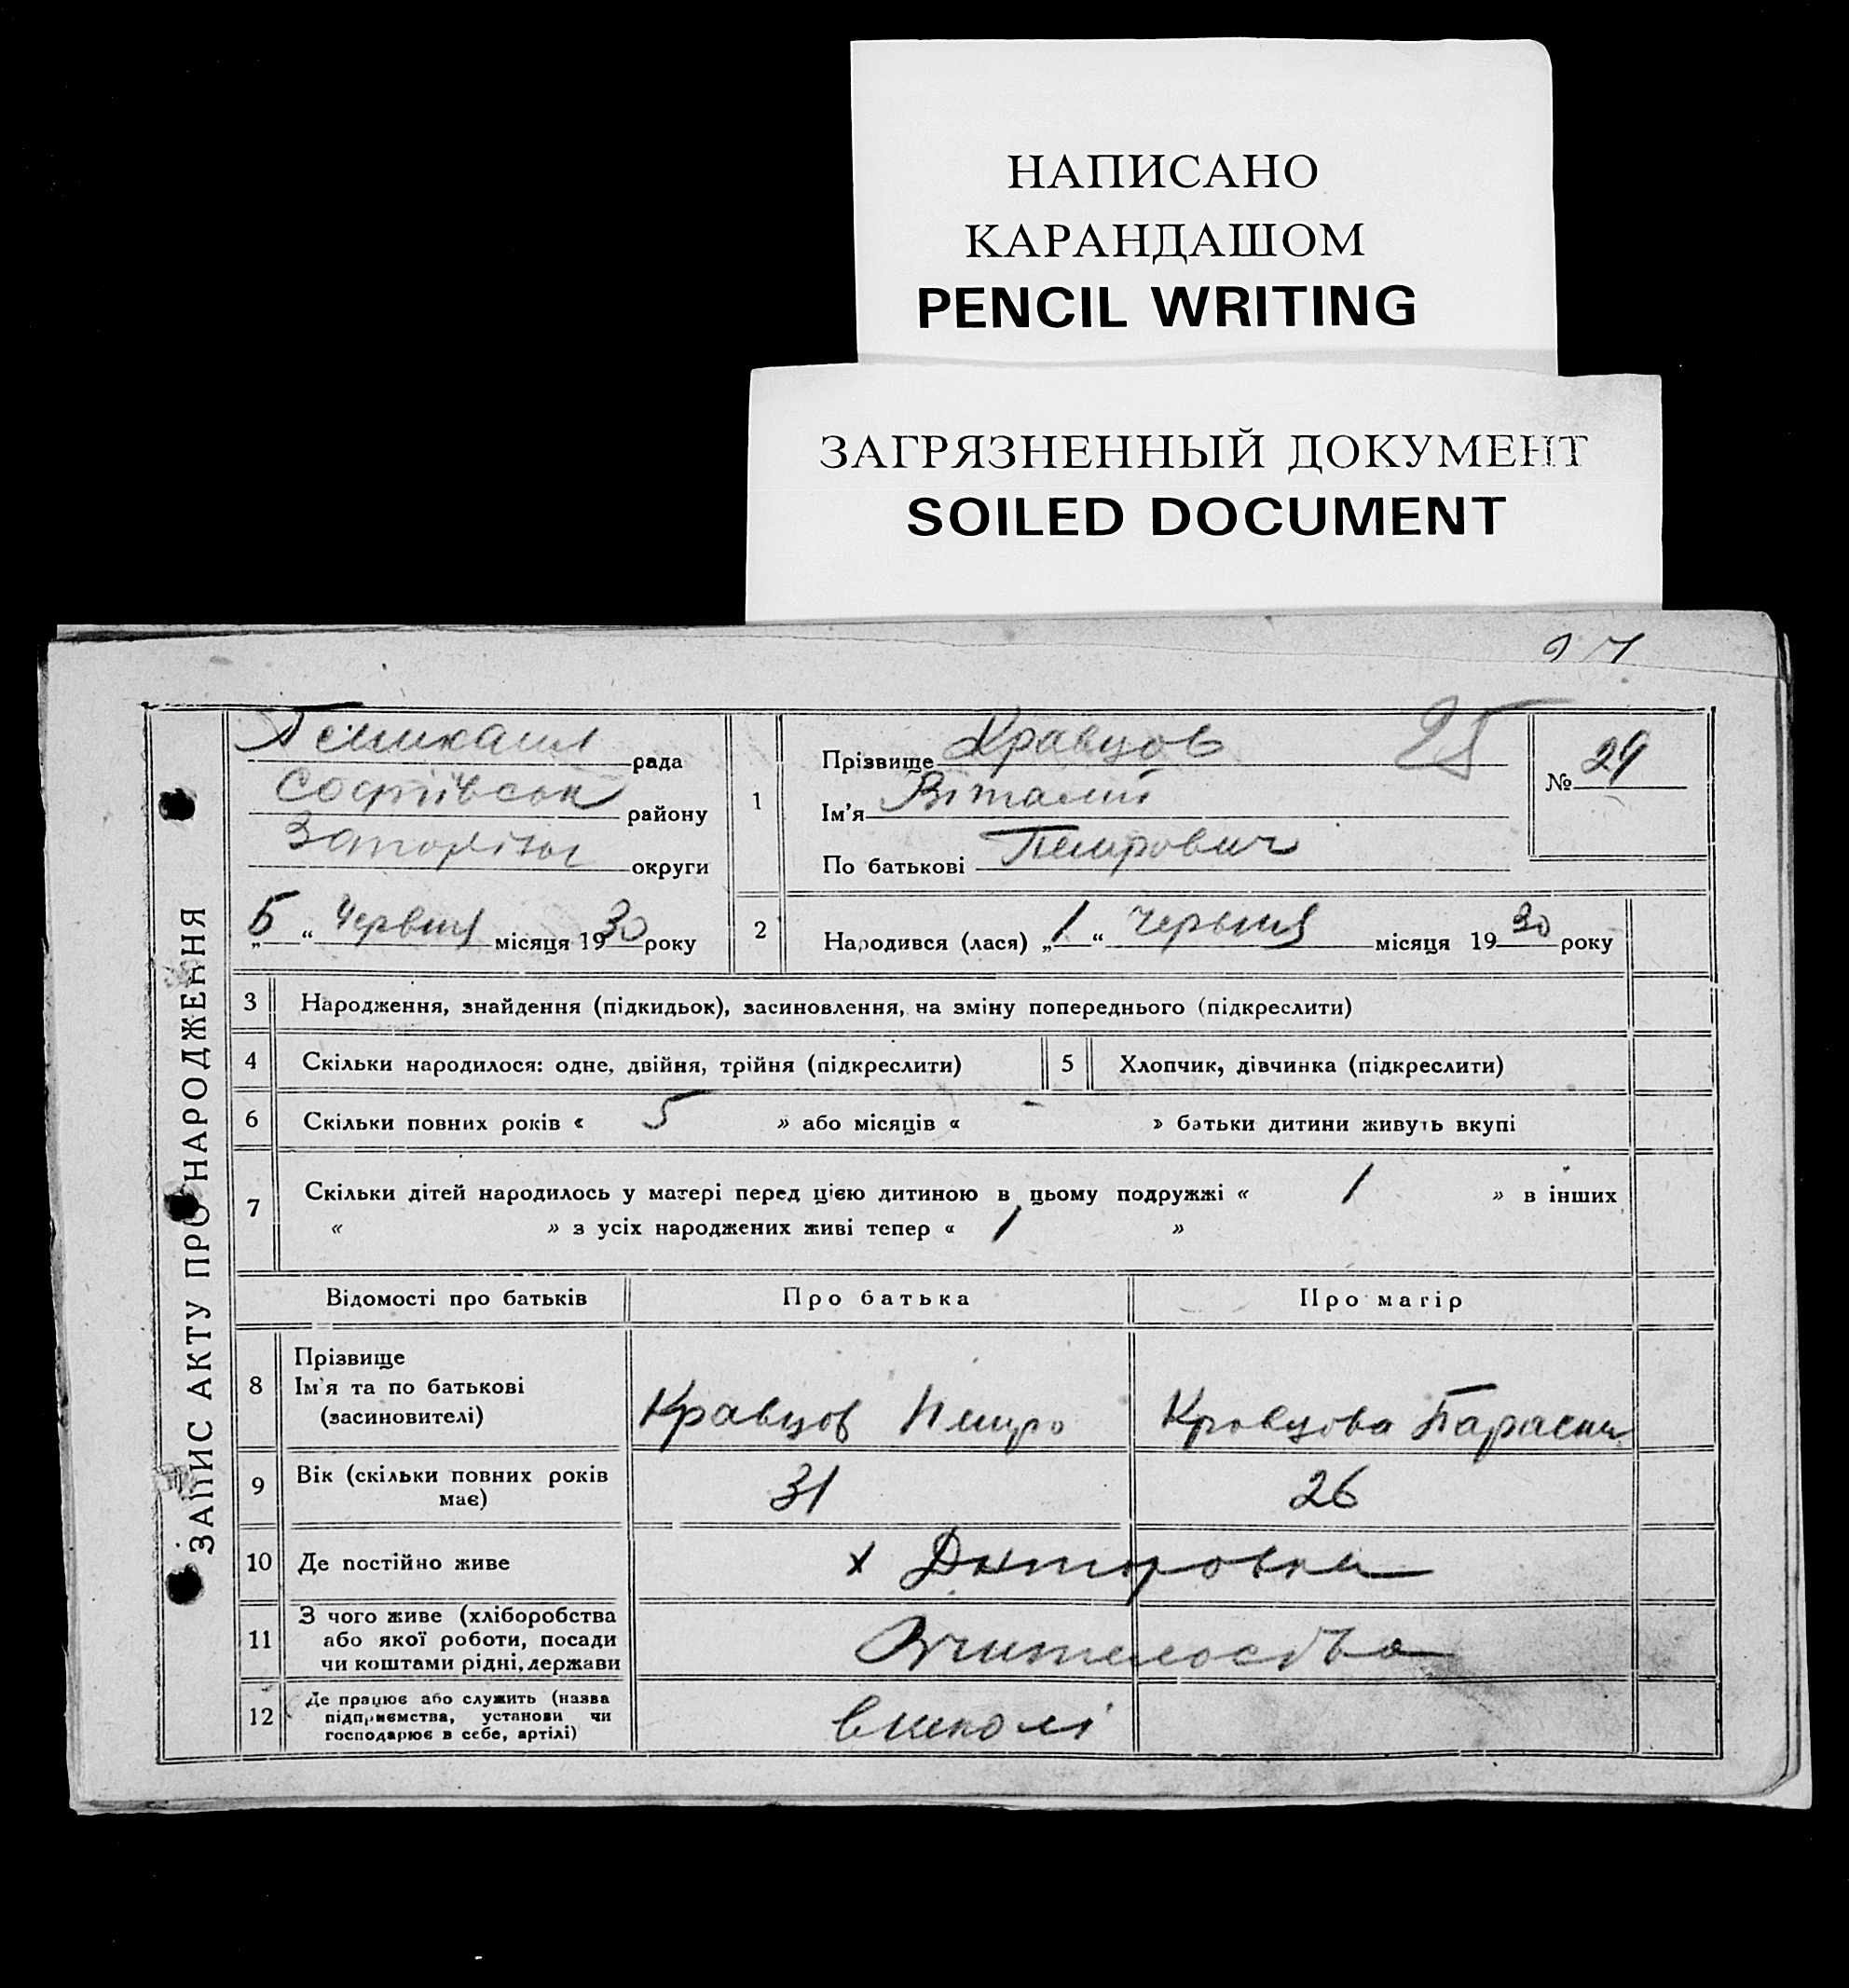 НАПИСАНО
КАРАНДАШОМ
PENCIL WRITING
ЗАГРЯЗНЕННЫЙ ДОКУМЕНТ
SOILED DOCUMENT
ЗАПИС АКТУ ПРО НАРОДЖЕННЯ
рада
Софіївськ району
округи
„5“ Червня місяця 1930 року
1
Прізвище Кравцов
25
Ім'я Віталий
По батькові Петрович
№ 24
2
Народився (лася) „1“ червня місяця 1930 року
3 Народження, знайдення (підкидьок), засиновлення, на зміну попереднього (підкреслити)
4 Скільки народилося: одне, двійня, трійня (підкреслити) 5 Хлопчик, дівчинка (підкреслити)
6 Скільки повних років « 5 » або місяців « - » батьки дитини живуть вкупі
7 Скільки дітей народилось у матері перед цією дитиною в цьому подружжі « 1 » в інших
« » з усіх народжених живі тепер « 1 »
Відомості про батьків Про батька Про матір
8 Прізвище
Ім'я та по батькові
(засновителі)
Кравцов Петро Кравцова Параска
9 Вік (скільки повних років
має)
31 26
10 Де постійно живе х Дмитровка
11 З чого живе (хліборобства
або якої роботи, посади
чи коштами рідні, держави
Вчительства
12 Де працює або служить (назва
підприємства, установи чи
господарює в себе, артілі)
в школі